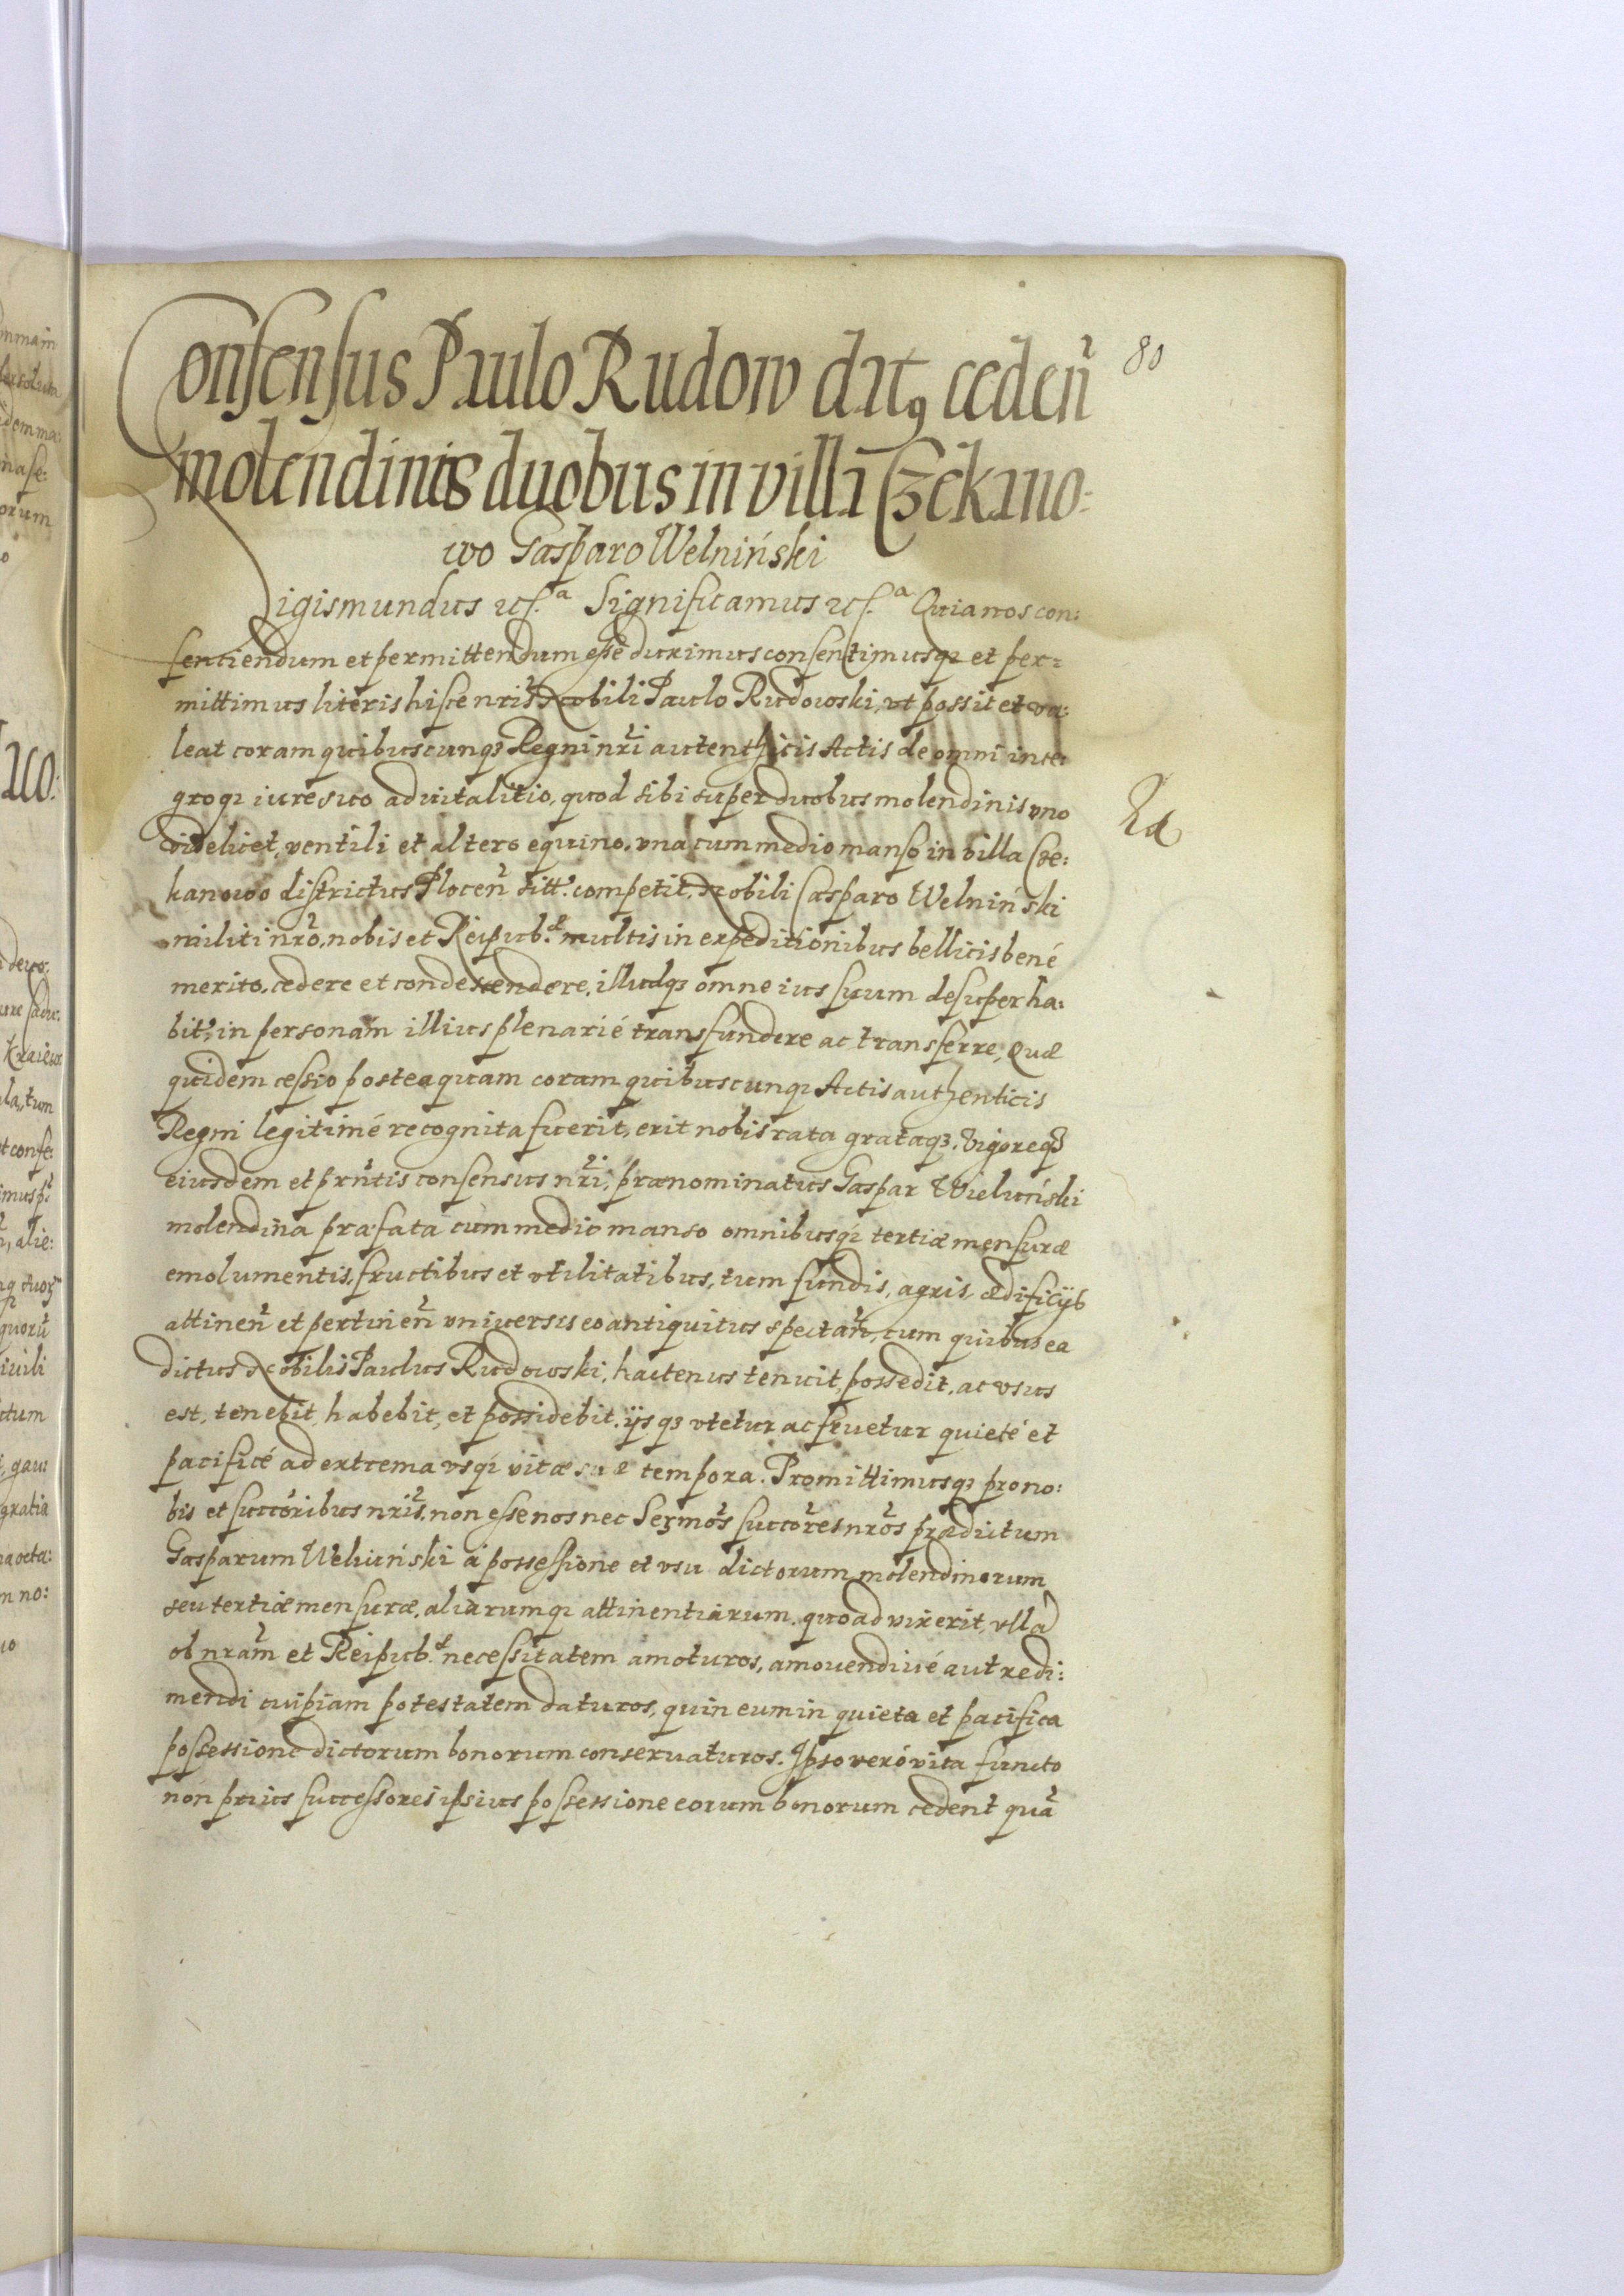 80
Consensus Paulo Rudow datꝰ cedeñ
molendinis duobus in villa Czekano-
wo Gasparo Welniński
Sigismundus etc.ª Significamus etc.ª Quia nos con:
sentiendum et permittendum esse duximus consentimusqȝ et per:
mittimus literis hisce nris Nobili Paulo Rudowski, vt possit et va:
leat coram quibuscunqȝ Regni nri autenthicis Actis de omni inte:
groqȝ iure suo aduitalitio, quod sibi super duobus molendinis vno
videlicet, ventili et altero equino, vna cum medio manso in villa Cze:
kanowo districtus Ploceñ sitt. competit, Nobili Casparo Welniński
militi nro, nobis et Reipub. multis in expeditionibus bellicis bené
merito, cedere et condescendere, illudqȝ omne ius suum desuper ha:
bit. in personam illius plenarié transfundere ac transferre, Quæ
quidem cessio posteaquam coram quibuscunqȝ Actis authenticis
Regni legitimé recognita fuerit, erit nobis rata grataqȝ. Vigoreqȝ
eiusdem et prntis consensus nri, prænominatus Gaspar Wieluński
molendina præfata cum medio manso omnibusqȝ tertiæ mensuræ
emolumentis, fructibus et vtilitatibus, tum fundis, agris, ædificijs
attineñ et pertineñ vniuersis eo antiquitus spectañ, cum quibus ea
dictus Nobilis Paulus Rudowski, hactenus tenuit, possedit, ac vsus
est, tenebit, habebit, et possidebit, ijsqȝ vtetur ac fruetur quieté et
pacificé ad extrema vsqȝ vitæ suæ tempora. Promittimusqȝ pro no:
bis et succoribus nris, non esse nos nec Sermos succores nros prædictum
Gasparum Weluński á possessione et vsu dictorum molendinorum
seu tertiæ mensuræ, aliarumqȝ attinentiarum, quoad vixerit, vllâ
ob nram et Reipub. necessitatem amoturos, amouendiué aut redi:
mendi cuipiam potestatem daturos, quin eum in quieta et pacifica
possessione dictorum bonorum conseruaturos. Ipso veró vita functo
non prius successores ipsius possessione eorum bonorum cedent quã